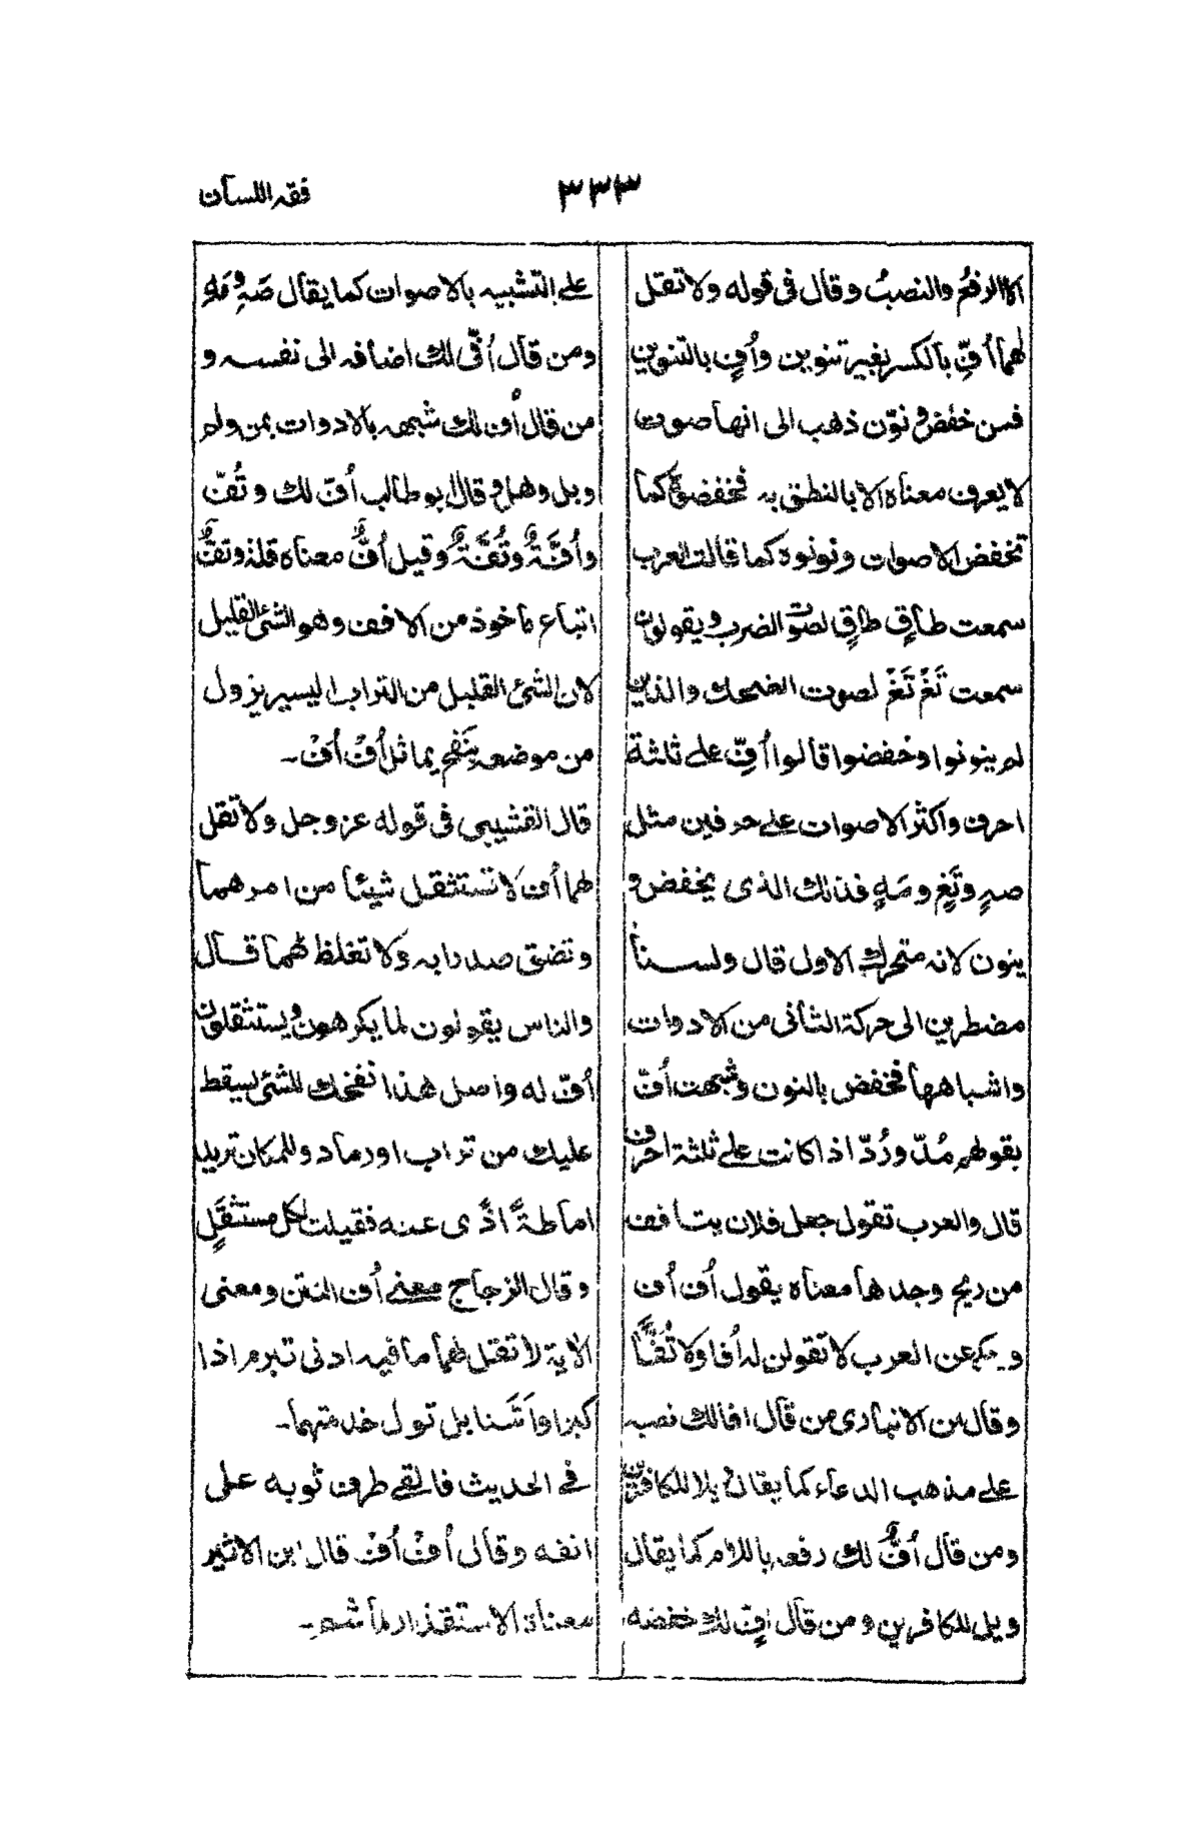 فقه اللسان
۳۳۳
الا الرفعُ والنصبُ وقال فی قوله ولا تقل
لهما أفِّ بالكسر بغير تنوين وأُفٍ بالتنوين
فمن خفض ونوّن ذهب الى انها صوت
لا يعرف معناه الا بالنطق به فخفضوه كما
تخفض الاصوات ونونوه كما قالت العرب
سمعت طاقٍ طاقٍ لصوت الضرب ويقولون
سمعت تَغٍ تَغٍ لصوت الضحك والذين
لم ينونوا وخفضوا قالوا أُفِّ على ثلثة
احرف واكثر الاصوات على حرفين مثل
صهٍ وتَغٍ ومَهٍ فذالك الذی يخفض و
ينون لانه متحرك الاول قال ولسنا
مضطرين الى حركة الثانی من الادوات
واشباهها فخفض بالنون وشبهت أُفّ
بقولهم مُدّ ورُدّ اذا كانت على ثلثة احرف
قال والعرب تقول جعل فلان يتأفف
من ريح وجدها معناه يقول أُف أُف
ويحكى عن العرب لا تقولن له أُفا ولا تُفّاً
وقال بن الانباری من قال افا لك نصبه
على مذهب الدعاء كما يقال ويلا للكافرين
ومن قال أُفٌّ لك رفعه باللام كما يقال
ويل للكافرين ومن قال افٍّ لك خفضه
على التشبيه بالاصوات كما يقال صَهٍ ومَهٍ
ومن قال أُفّی لك اضافه الى نفسه و
من قال أُفْ لك شبهه بالادوات بمن ولم
وبل وهل وقال ابو طالب أُفّ لك وتُفّ
وأُفَّةٌ وتُفَّةٌ وقيل أُفٌّ معناه قلة وتفٌّ
اتباع مأخوذ من الافف وهو الشئ القليل
لان الشئ القليل من التراب اليسير يزول
من موضعه بنفخ يماثل أُفْ أُفْ۔
قال القتيبی فی قوله عز وجل ولا تقل
لهما أُف لا تستثقل شيئا من امرهما
وتضق صدرا به ولا تغلظ لهما قال
والناس يقولون لما يكرهون ويستثقلون
أُفّ له واصل هذا نفخك للشئ يسقط
عليك من تراب او رماد وللمكان تريد
اماطةً اذًى عنه فقيلت لكل مستثقَلٍ
وقال الزجاج معنى أُف النتن ومعنى
الاية لا تقل لهما ما فيه ادنی تبرم اذا
كبرا واَسَنا بل تول خدمتهما۔
فی الحديث فالقى طرف ثوبه على
انفه وقال أُفْ أُفْ قال ابن الاثير
معناة الاستقذار لما شم۔